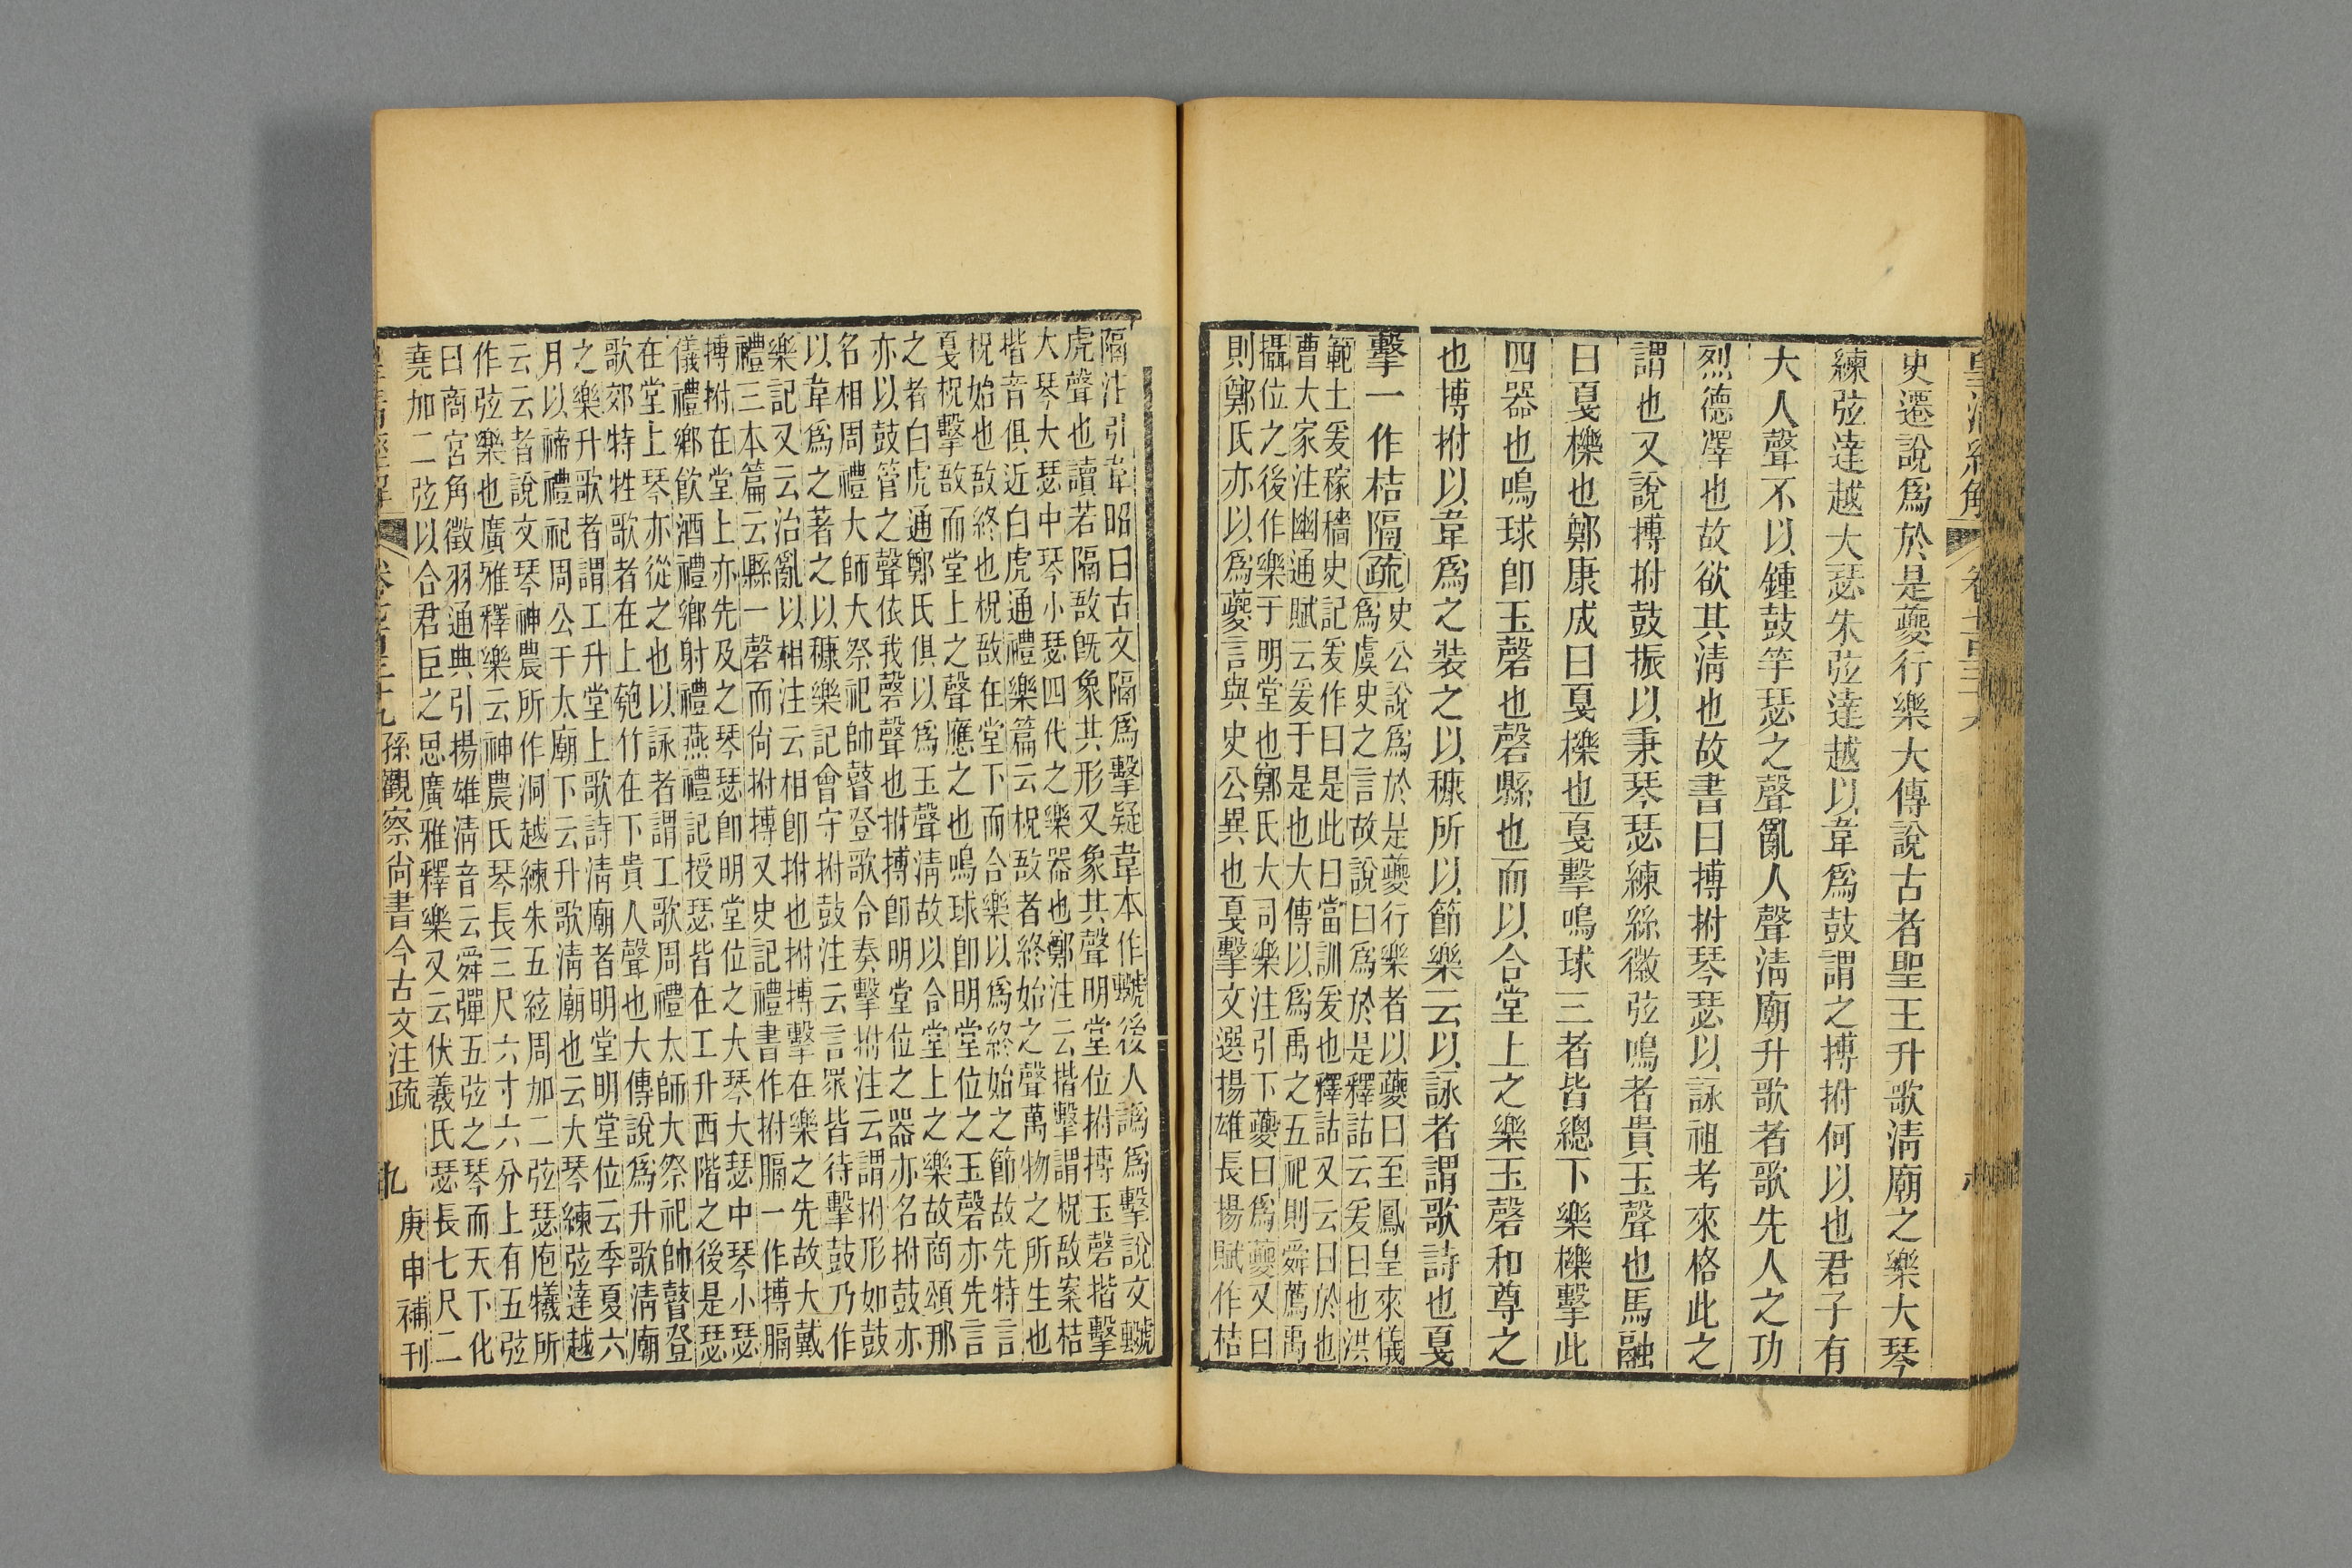 史遷說爲於是夔行樂大傳說古者聖王升歌淸廟之樂大琴
練弦達越大瑟朱弦達越以韋爲鼓謂之搏拊何以也君子有
大人聲不以鍾鼓竽瑟之聲亂人聲淸廟升歌者歌先人之功
烈德澤也故欲其淸也故書曰搏拊琴瑟以詠祖考來格此之
謂也又說搏拊鼓振以秉琴瑟練絲徽弦鳴者貴玉聲也馬融
曰戛櫟也鄭康成曰戛櫟也戛擊鳴球三者皆總下樂櫟擊此
四器也鳴球卽玉磬也磬縣也而以合堂上之樂玉磬和尊之
也搏拊以韋爲之裝之以穅所以節樂云以詠者謂歌詩也戛
擊一作桔隔疏史公說爲於是夔行樂者以夔曰至鳳皇來儀
爲虞史之言故說曰爲於是釋詁云爰曰也洪
範土爰稼穡史記爰作曰是此曰當訓爰也釋詁又云曰於也
曹大家注幽通賦云爰于是也大傳以爲禹之五祀則舜薦禹
攝位之後作樂于明堂也鄭氏大司樂注引下夔曰爲夔又曰
則鄭氏亦以爲夔言與史公異也戛擊文選揚雄長揚賦作桔
隔注引韋昭曰古文隔爲擊疑韋本作䖜後人譌爲擊說文䖜
虎聲也讀若隔敔旣象其形又象其聲明堂位拊搏玉磬揩擊
大琴大瑟中琴小瑟四代之樂器也鄭注云揩擊謂柷敔案桔
揩音俱近白虎通禮樂篇云柷敔者終始之聲萬物之所生也
柷始也敔終也柷敔在堂下而合樂以爲終始之節故先特言
戛柷擊敔而堂上之聲應之也鳴球卽明堂位之玉磬亦先言
之者白虎通鄭氏俱以爲玉聲淸故以合堂上之樂故商頌那
亦以鼓管之聲依我磬聲也拊搏卽明堂位之器亦名拊鼓亦
名相周禮大師大祭祀帥瞽登歌令奏擊拊注云謂拊形如鼓
以韋爲之著之以穅樂記會守拊鼓注云言眾皆待擊鼓乃作
樂記又云治亂以相注云相卽拊也拊搏擊在樂之先故大戴
禮三本篇云縣一磬而尙拊搏又史記禮書作拊膈一作搏膈
搏拊在堂上亦先及之琴瑟卽明堂位之大琴大瑟中琴小瑟
儀禮鄉飮酒禮鄉射禮燕禮記授瑟皆在工升西階之後是瑟
在堂上琴亦從之也以詠者謂工歌周禮太師大祭祀帥瞽登
歌郊特牲歌者在上匏竹在下貴人聲也大傳說爲升歌淸廟
之樂升歌者謂工升堂上歌詩淸廟者明堂明堂位云季夏六
月以禘禮祀周公于太廟下云升歌淸廟也云大琴練弦達越
云云者說文琴神農所作洞越練朱五絃周加二弦瑟庖犧所
作弦樂也廣雅釋樂云神農氏琴長三尺六寸六分上有五弦
曰商宮角徵羽通典引揚雄淸音云舜彈五弦之琴而天下化
堯加二弦以合君臣之恩廣雅釋樂又云伏羲氏瑟長七尺二
孫觀察尙書今古文注疏
九
庚申補刊